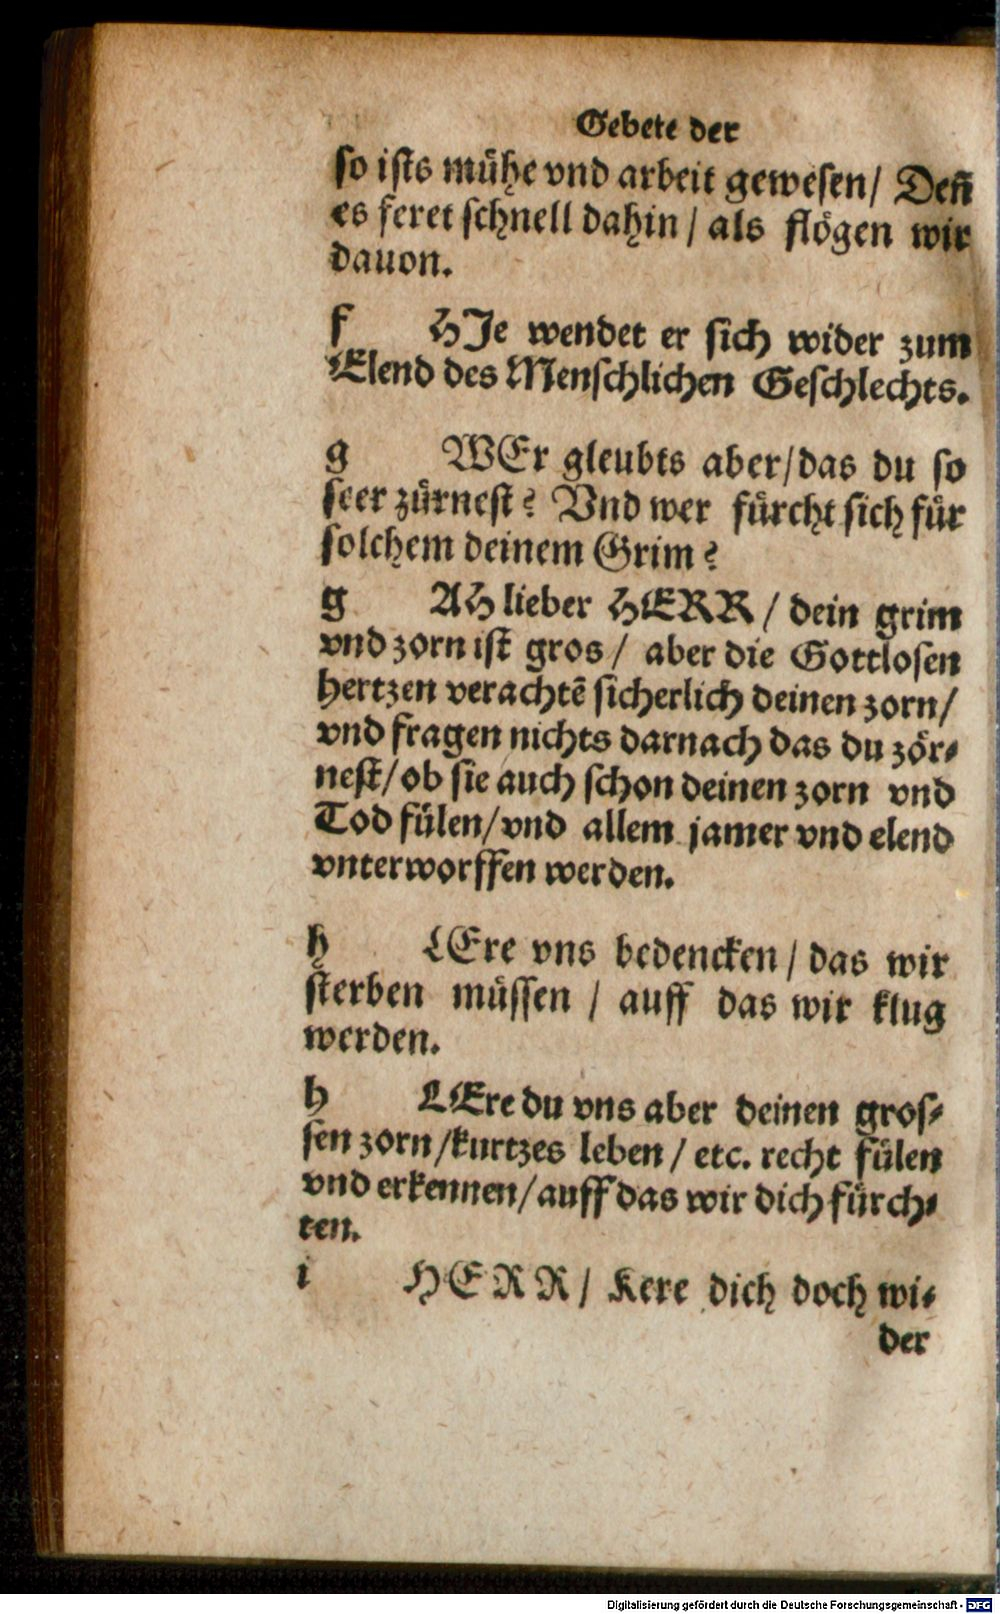 Gebete der
so ists mühe vnd arbeit gewesen/ Deñ
es feret schnell dahin/ als flögen wir
dauon.
f HJe wendet er sich wider zum
Elend des Menschlichen Geschlechts.
g WEr gleubts aber/das du so
seer zürnest? Vnd wer fürcht sich für
solchem deinem Grim?
g AH lieber HERR/ dein grim
vnd zorn ist gros/ aber die Gottlosen
hertzen verachtē sicherlich deinen zorn/
vnd fragen nichts darnach das du zör⸗
nest/ob sie auch schon deinen zorn vnd
Tod fülen/vnd allem jamer vnd elend
vnterworffen werden.
h LEre vns bedencken/ das wir
sterben müssen/ auff das wir klug
werden.
h LEre du vns aber deinen gros⸗
sen zorn/kurtzes leben/ etc. recht fülen
vnd erkennen/auff das wir dich fürch⸗
ten.
i HERR/ Kere dich doch wi⸗
der
Digitalisierung gefördert durch die Deutsche Forschungsgemeinschaft - DFG